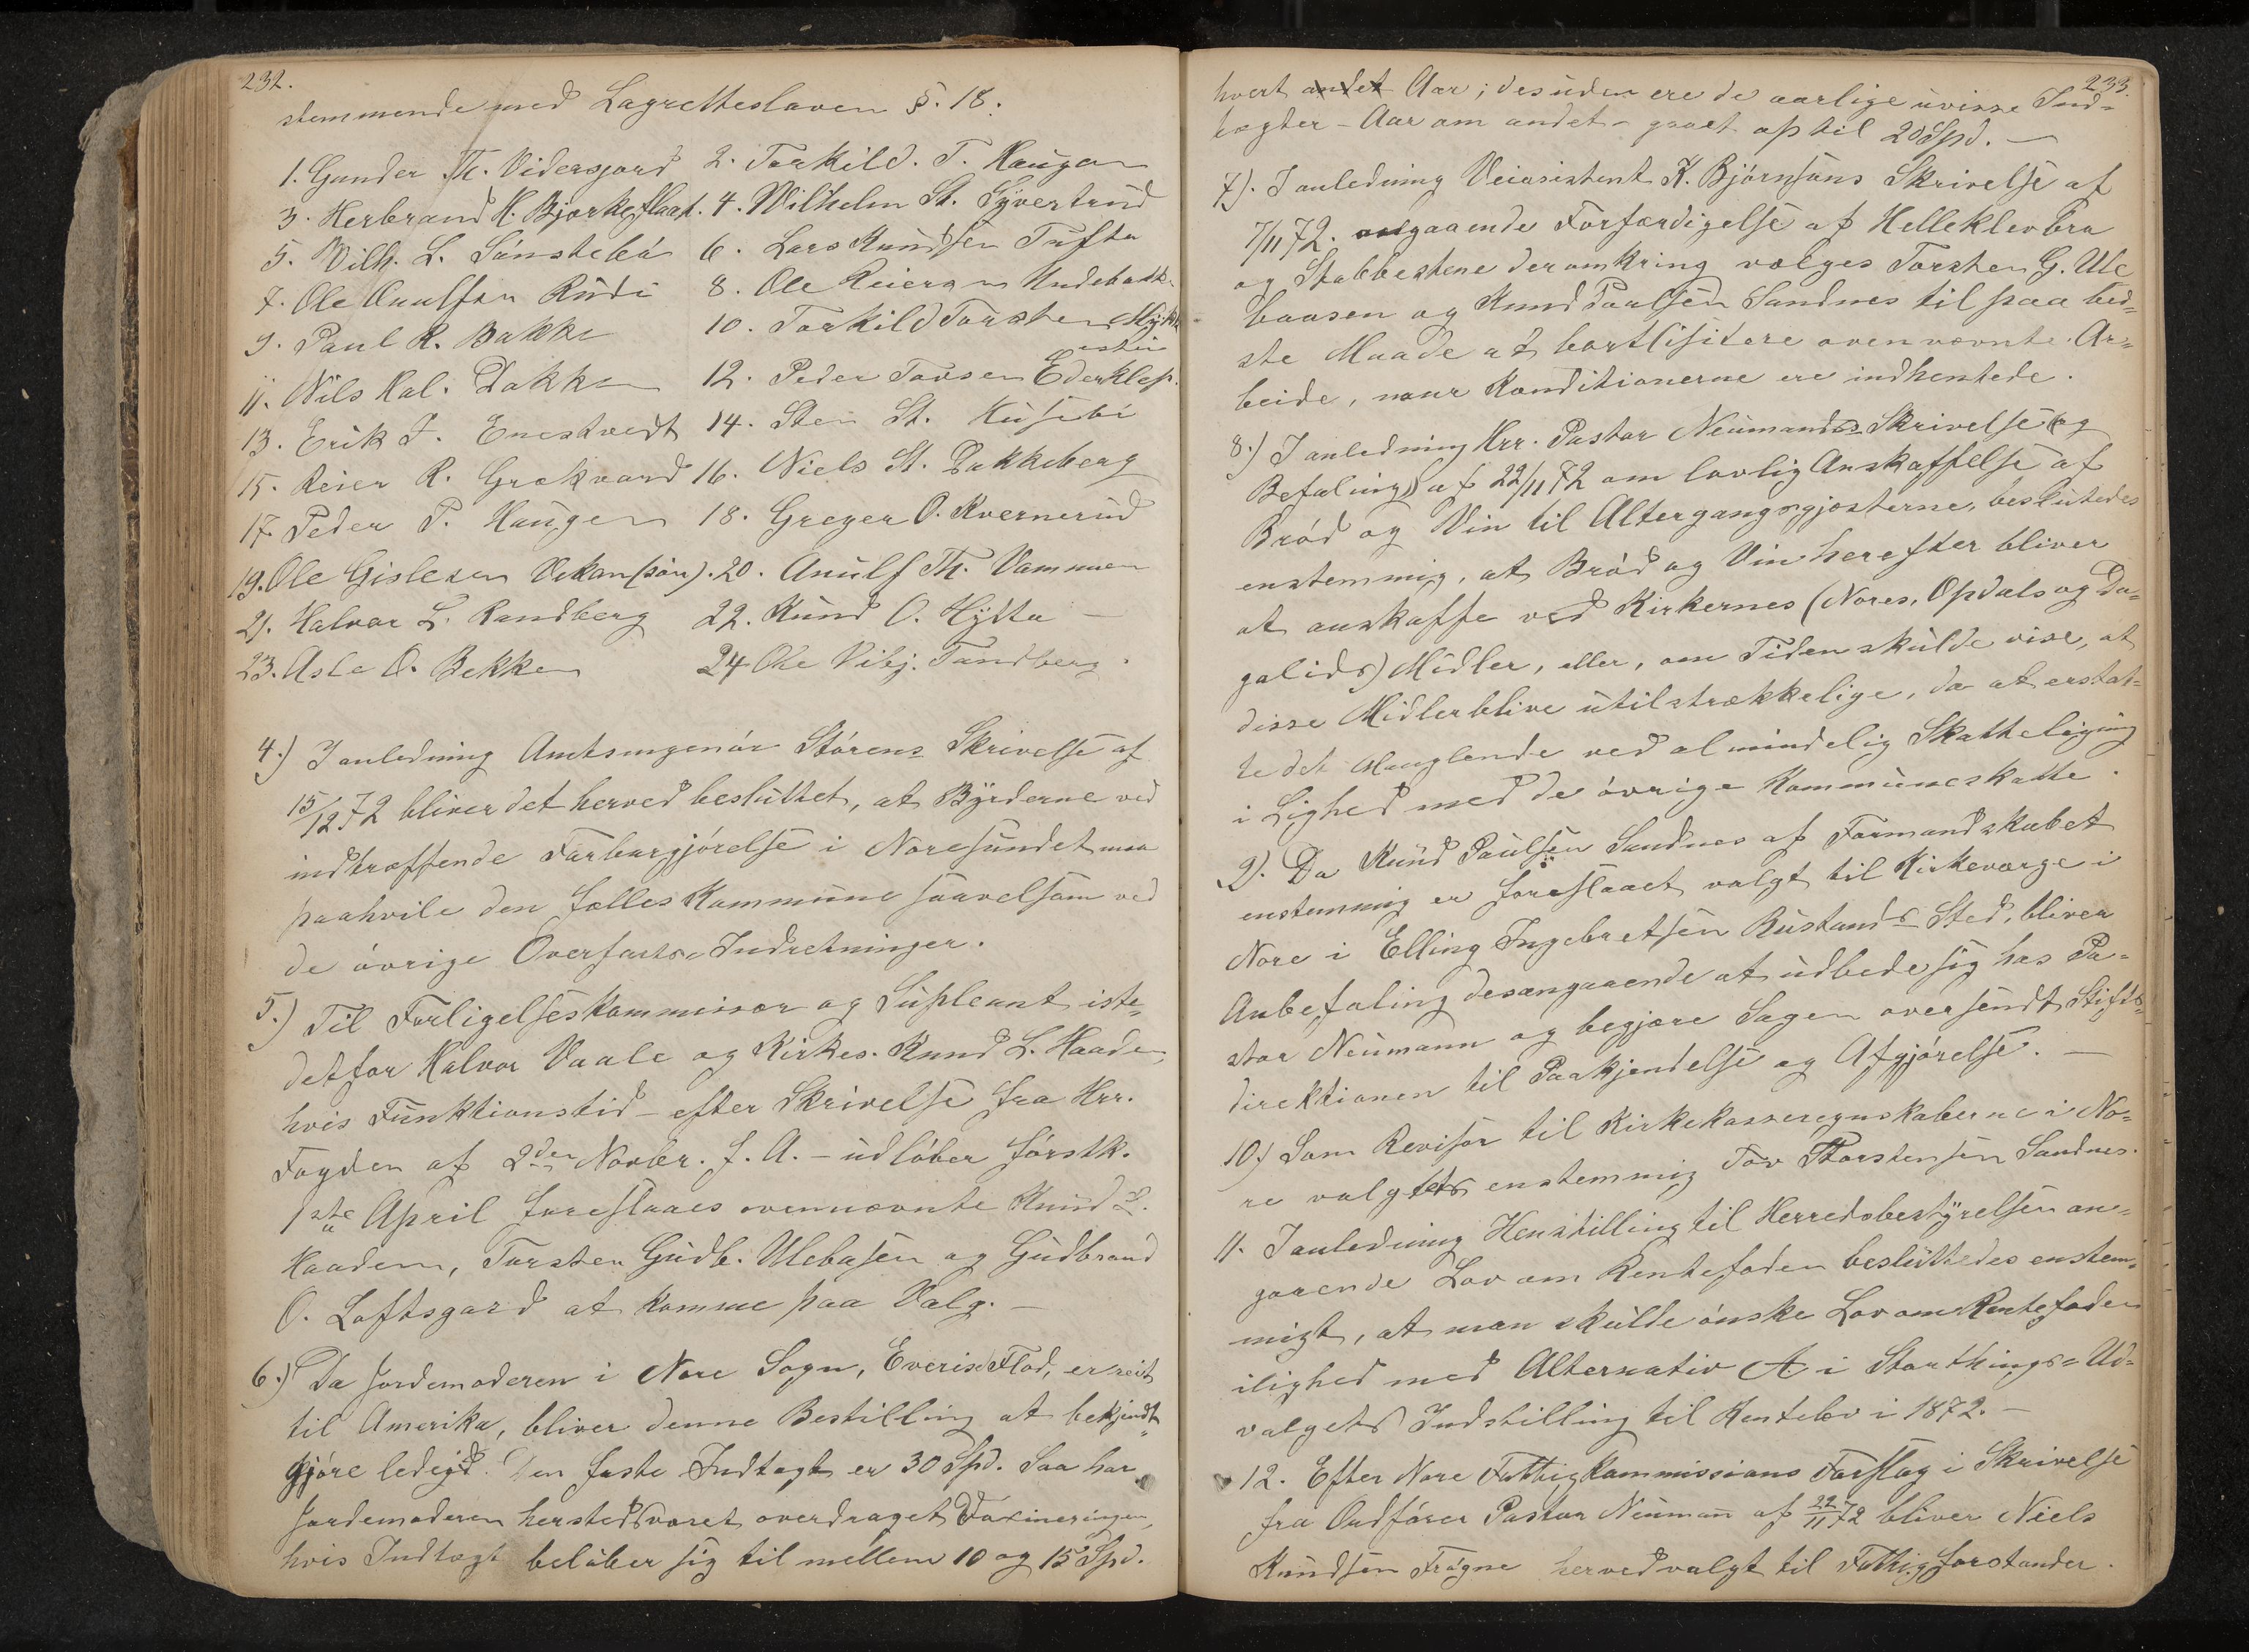 232.
stemmende med Lagrettesloven §. 18.
1. Gunder Th. Vidersjord 2. Torkild. T. Haugen
3. Herbrand H. Bjørkeflaat. 4. Wilhelm St. Syvertrud
5. Wilh. L. Sønstebø 6. Lars Knudsen Tufta
7. Ole Knudsen Rudi 8. Ole Reiersen
9. Paul R. Bakke 10. Torkild Torsten
11. Nils Hal. Dokken 12. Peder Tovsen Ederklep.
13. Erik J. Enestvedt 14. Sten St. Husebi
15. Reier R. Grøkvard 16. Niels St. Dokkeberg
17. Peder P. Haugen 18. Greger O. Kvernerud
19. Ole Gislesen Vekan (søre). 20. Anulf Th. Vammen
21. Halvor L. Randberg 22. Knud O. Hytta –
23. Asle O. Bekken 24 Ole Vibj. Tandberg.
4.) I anledning Amtsingeniør Størens Skrivelse af
15/12 72 bliver det herved besluttet, at Byrderne ved
indtræffende Farbargjørelse i Noresundet maa
paahvile den fælles Kommune saavelsom ved
de øvrige Overfarts-Indretninger.
5.) Til Forligelseskommissær og Supleant iste=
detfor Halvor Vaale og Kirkes. Knud L. Haaden,
hvis Funktionstid – efter Skrivelse fra Hrr.
Fogden af 2den Novbr. f. A. – udløber førstk.
1ste April foreslaaes ovennævnte Knud L.
Haadem, Torsten Gudb. Ulebasen og Gudbrand
O. Loftsgard at komme paa Valg. –
6.) Da Jordemoderen i Nore Sogn, Everise Flod, er reist
til Amerika, bliver denne Bestilling at bekjendt=
gjøre ledigt. Den faste Indtægt er 30 Spd. Saa har
Jordemoderen hersteds været overdraget Vaxineringen,
hvis Indtægt beløber sig til mellem 10 og 15 Spd.
233.
hvert andet Aar; desuden ere de aarlige uvisse Ind=
tægter – Aar om andet – gaaet op til 20 Spd. –
7). I anledning Veiasistent K. Bjørnsons Skrivelse af
7/11 72. angaaende Forfærdigelse af Helleklevbra
og Stabbestene deromkring vælges Torsten G. Ule
baasen og Knud Paulsen Sandnes til paa bed=
ste Maade at bortlisitere ovennævnte Ar=
beide, naar Konditionerne ere indhentede.
8.) I anledning Hrr. Pastor Neumands Skrivelse (og
Befaling) af 22/11 72 om lovlig Anskaffelse af
Brød og Vin til Altergangsgjæsterne, besluttedes
enstemmig, at Brød og Vin herefter bliver
at anskaffe ved Kirkernes (Nores, Opdals og Da=
galids) Midler, eller, om Tiden skulde vise, at
disse Midler blive utilstrækkelige, da at erstat=
te det Manglende ved almindelig Skatteligning
i Lighed med de øvrige Kommuneskatte.
9). Da Knud Paulsen Sandnes af Formandskabet
enstemmig er foreslaaet valgt til Kirkeværge i
Nore i Elling Ingebretsen Rustands Sted, bliver
Anbefaling desangaaende at udbede sig hos Pa=
stor Neumann og begjære Sagen oversendt Stifts=
direktionen til Paakjendelse og Afgjørelse. –
10.) Som Revisor til Kirkekasseregnskaberne i No=
re valgtes enstemmig Tov Thorstensen Sandnes.
11. I anledning Henstilling til Herredsbestyrelsen an=
gaaende Lov om Rentefoden besluttedes enstem=
migt, at man skulde ønske Lov om Rentefoden
i lighed med Alternativ A i Storthings=Ud=
valgets Indstilling til Rentelov i 1872. –
12. Efter Nore Fattigkommissions Forslag i Skrivelse
fra Ordfører Pastor Neumann af 22/11 72 bliver Niels
Knudsen Frøgne herved valgt til Fattigforstander.